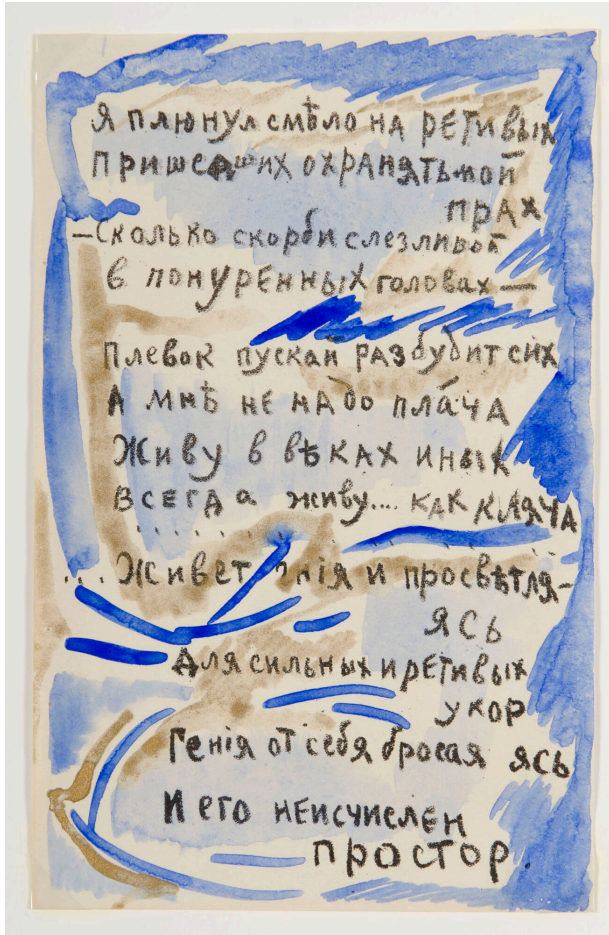 Я плюнул смѣло на ретивых
пришедших охранять мой
прах
—Сколько скорби слезливой
в понуренных головах—
Плевок пускай разбудит сих
А мнѣ не надо плача
Живу в вѣках иных
всегда живу.... как кляча
...Живет и просвѣтля-
ясь
Для сильных и ретивых
укор
Генiя от себя бросая ясь
И его неисчислен
простор.